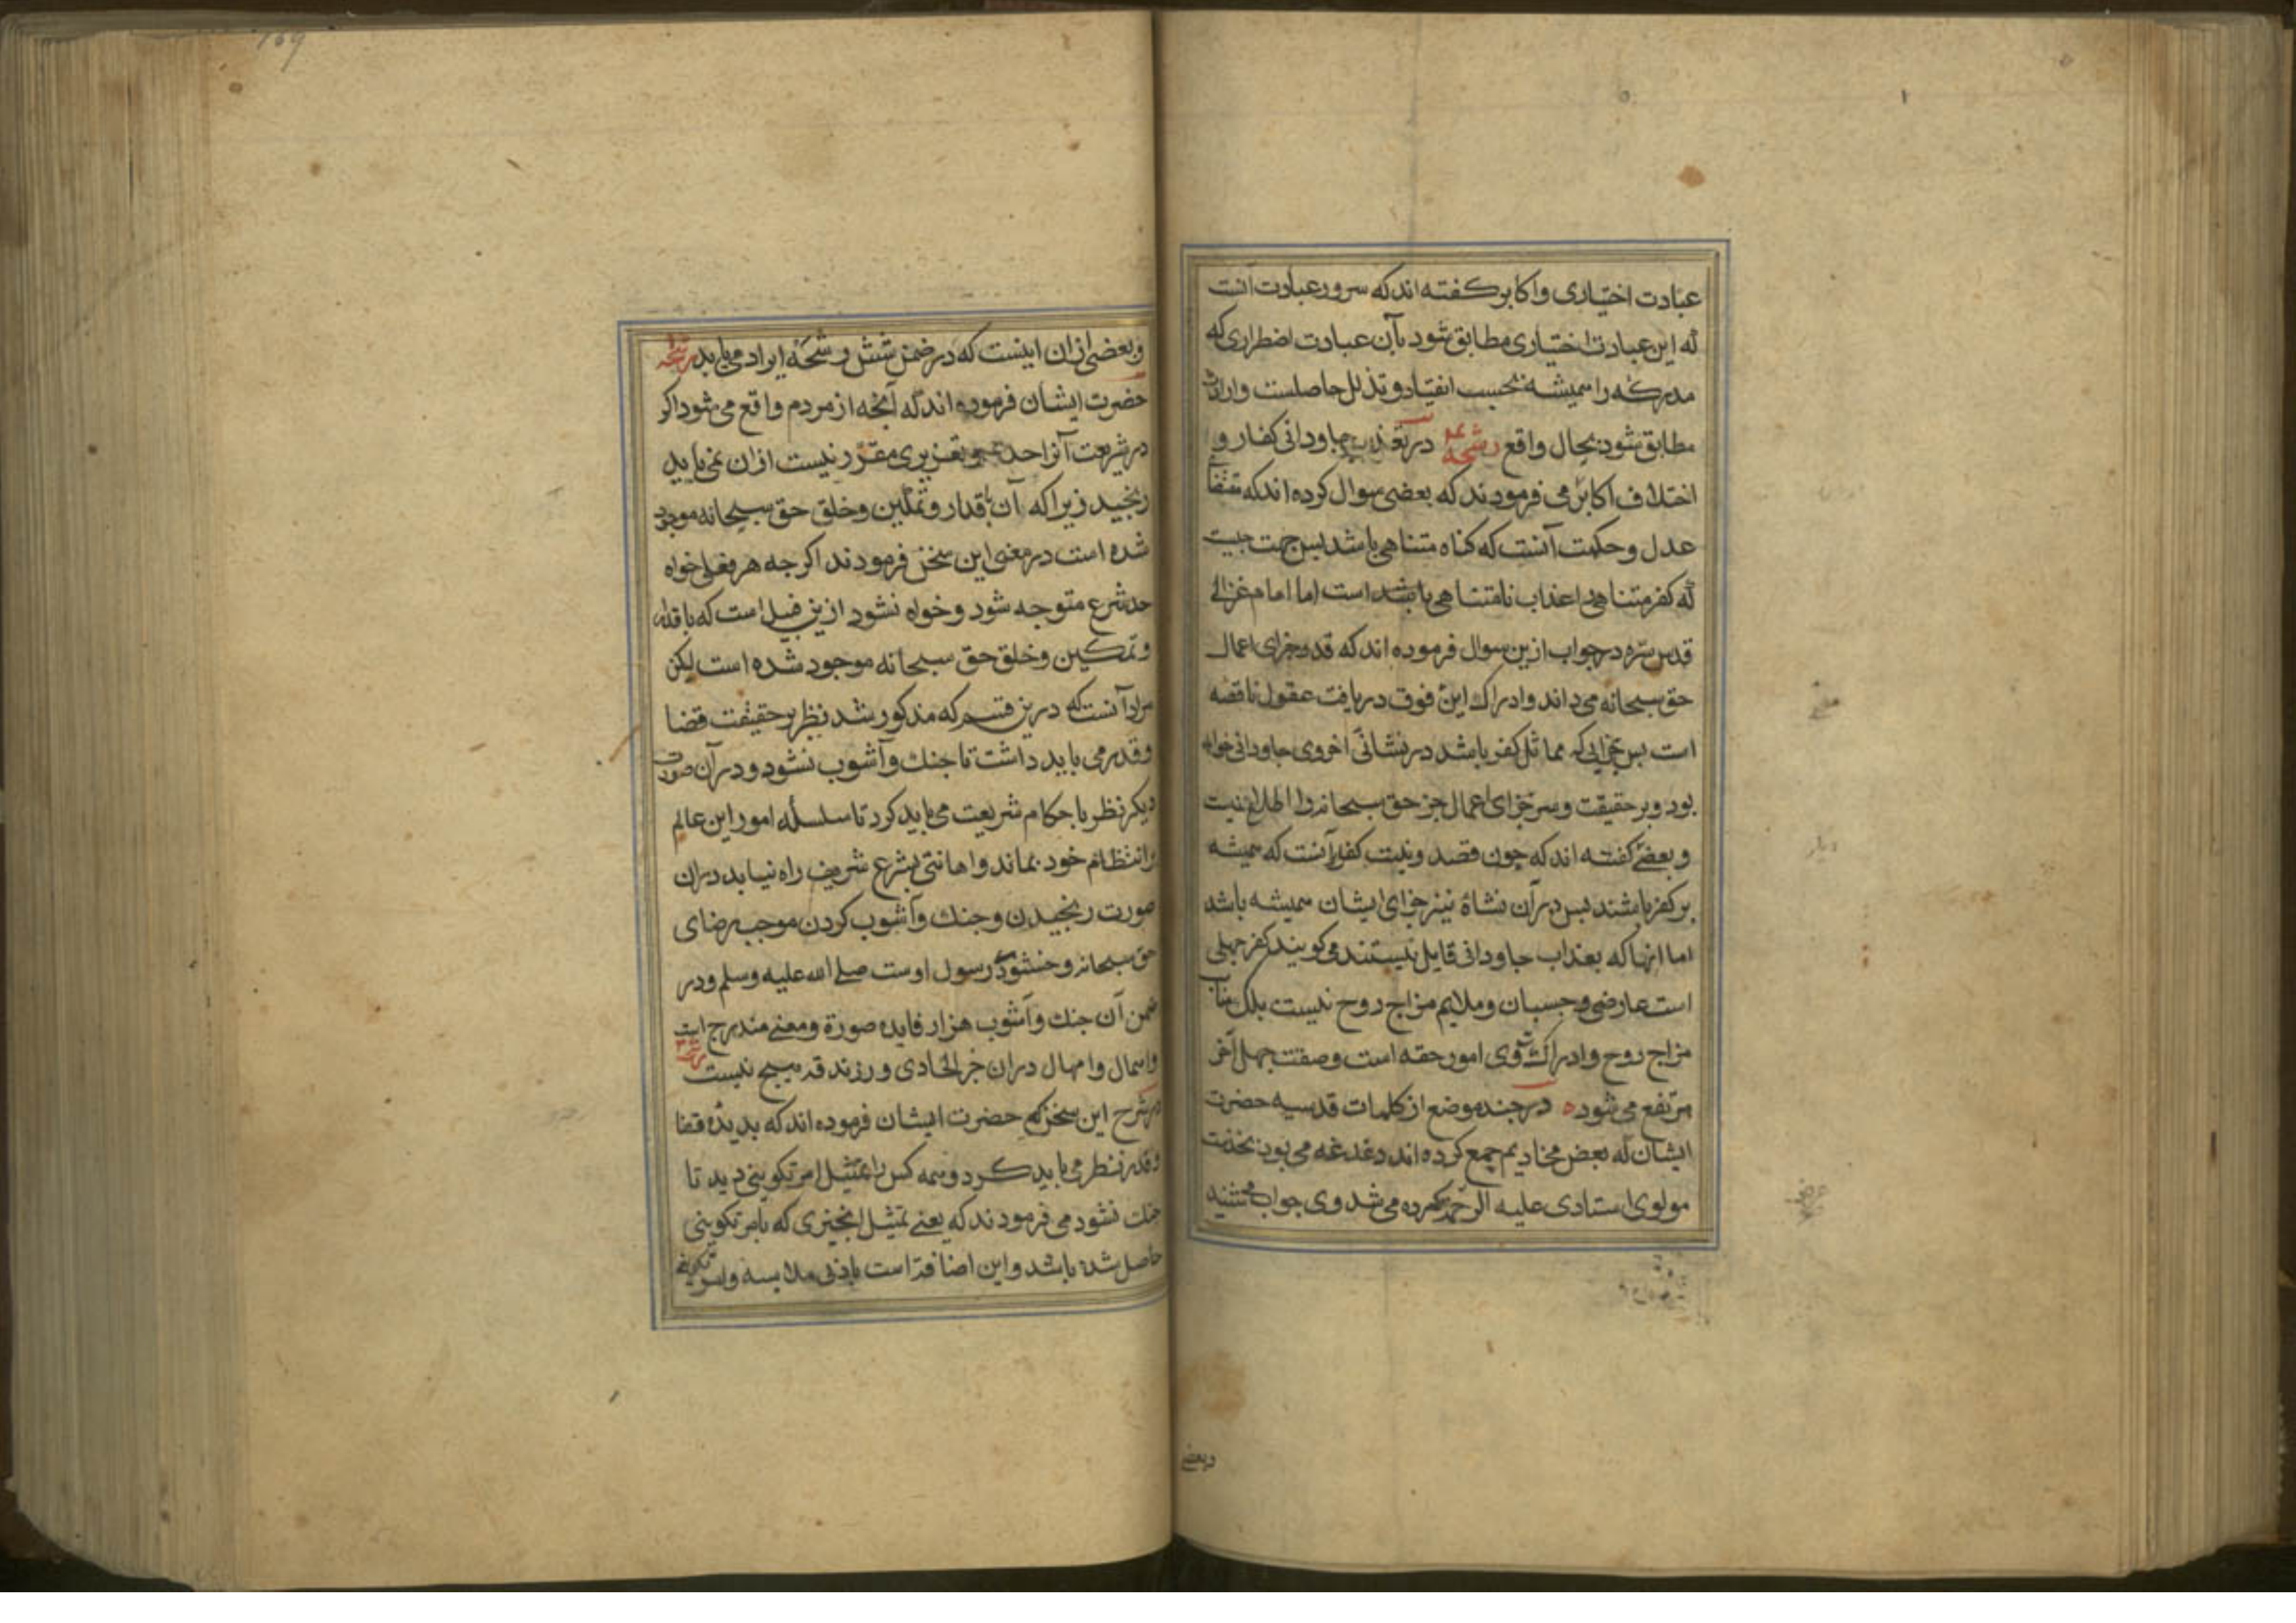 عبادت اختیاری و اکابر کفته اند که سرور عبادت آنست
که این عبادت اختیاری مطابق شود بآن عبادت اضطراری که
مدرکه را همیشه بحسب انقیاد و تذلل حاصلست و ارادت
مطابق شود بحال واقع رشحه در تعذیب جاودانی کفار و
اختلاف اکابر می فرمودند که بعضی سوال کرده اند که مقتضای
عدل و حکمت آنست که کناه متناهی باشد پس جهت چیست
که کفر متناهی را عذاب نامتناهی باشد است اما امام غزالی
قدس سره در جواب ازین سوال فرموده اند که قدر جزای اعمال
حق سبحانه می داند و ادراک این فوق دریافت عقول ناقصه
است پس جزایی که مماثل کفر باشد در نشائی اخروی جاودانی خواهد
بود و بر حقیقت و سر جزای اعمال جز حق سبحانه را اطلاع نیست
و بعضی کفته اند که چون قصد و نیت کفار آنست که همیشه
بر کفر باشند پس در آن نشاة نیز جزای ایشان همیشه باشد
اما انها که بعذاب جاودانی قایل نیستند می کویند کفر جهلی
است عارضی و چسبان و ملایم مزاج روح نیست بلک مناسب
مزاج روح و ادراک وی امور حقه است و صفت جهل آخر
مرتفع می شود ه در چند موضع از کلمات قدسیه حضرت
ایشان که بعض مخادیم جمع کرده اند دغدغه می بود بخدمت
مولوی استادی علیه الرحمه می شد وی جواب می
وبعضی
و بعضی ازان اینست که در ضمن شش رشحه ایراد می یابد رشحه
حضرت ایشان فرموده اند که آنچه از مردم واقع می شود اکر
در شریعت آنرا حدی و تعزیری مقرر نیست ازان نمی باید
رنجید زیرا که آن باقدار و تمکین و خلق حق سبحانه موجود
شده است در معنی این سخن فرمودند اکر چه هر فعلی خواه
حد شرع متوجه شود و خواه نشود ازین قبیل است که باقدار
و تمکین و خلق حق سبحانه موجود شده است لیکن
مراد آنست که درین قسم که مذکور شد نظر بر حقیقت قضا
و قدر می باید داشت تا جنک و آشوب نشود و در آن صورت
دیکر نظر باحکام شریعت می باید کرد تا سلسله امور این عالم
بر انتظام خود بماند و اهانتی بشرع شریف راه نیابد دران
صورت رنجیدن و جنک و آشوب کردن موجب رضای
حق سبحانه و خشنودی رسول اوست صلی الله علیه وسلم و در
ضمن آن جنک و آشوب هزار فایده صورة و معنی مندرج است
و اهمال و امهال دران جز الحادی و زندقه هیچ نیست رشحه
در شرح این سخن که حضرت ایشان فرموده اند که بدیده قضا
و قدر نظر می باید کرد و همه کس را ممتثل امر تکوینی دید تا
جنک نشود می فرمودند که یعنی ممتثل انچیزی که بامر تکوینی
حاصل شده باشد و این اضافة است بادنی ملابسه و امر تکوینی